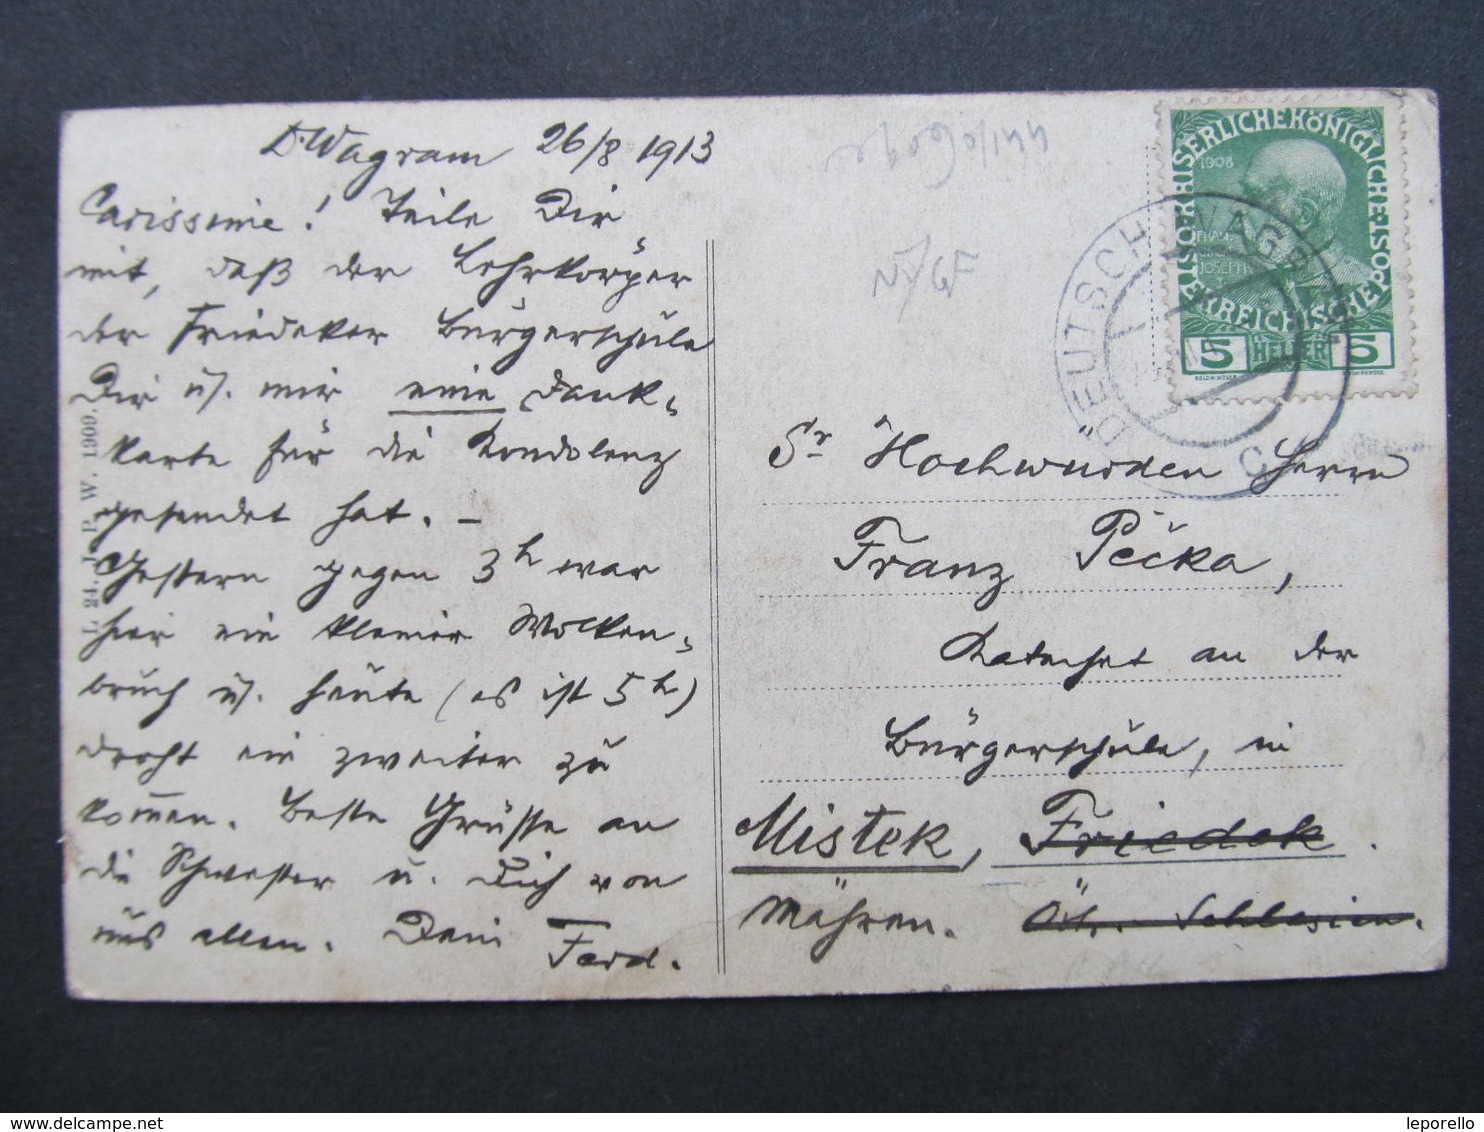 D. Wagram 26/8 1913
Carissime! Teile Dir
mit, daß der Lehrkörper
der Friedeker Bürgerschule
Dir u. mir eine Dank-
karte für die Kondolenz
gesendet hat. –
Gestern gegen 3h war
hier ein kleiner Wolken-
bruch u. heute (es ist 5h)
droht ein zweiter zu
kommen. Beste Grüsse an
die Schwester u. Dich von
uns allen. Dein Ferd.
L. 24. J. P. W. 1909.
N/GF
KAISERLICHE KÖNIGLICHE
ÖSTERREICHISCHE POST
1908
FRANZ
JOSEPH
5 HELLER 5
DEUTSCH WAGRAM
C
Sr Hochwürden Herrn
Franz Pěčka,
Katechet an der
Bürgerschule, in
Mistek, Friedek.
Mähren. Öst. Schlesien.
leporello
delcampe.net